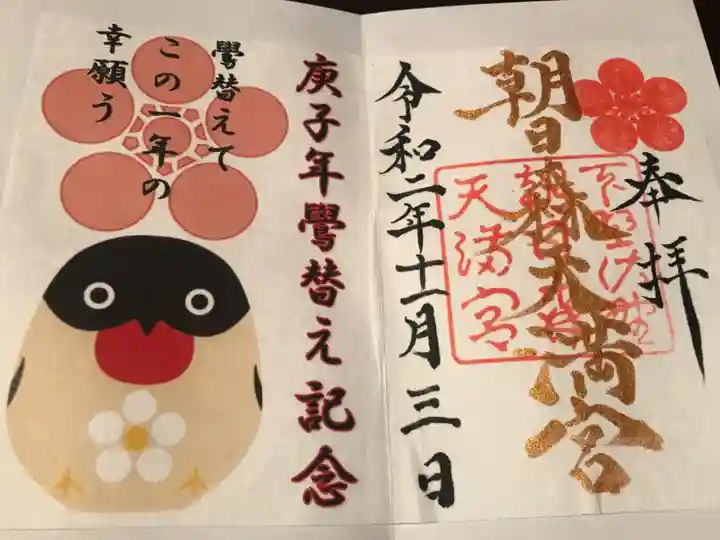 奉拝
朝日森天満宮
下野佐野
朝日森
天満宮
令和二年十一月三日
庚子年鷽替え記念
鷽替えて
この一年の
幸願う